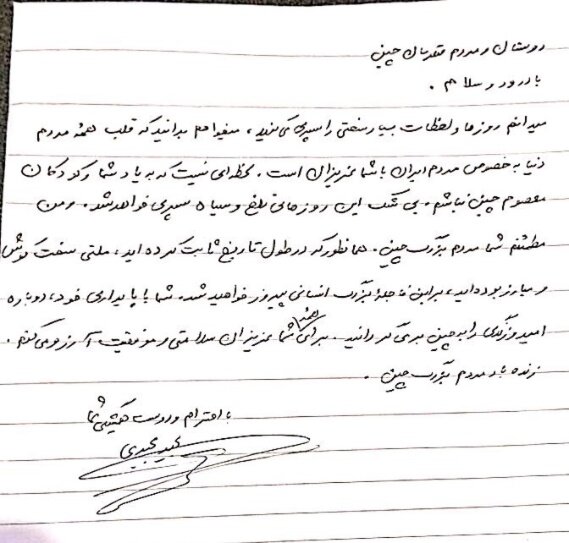 دوستان و مردم قهرمان چین
با درود و سلام .
میدانم روزها و لحظات بسیار سختی را سپری می‌کنید ، میخواهم بدانید که قلب همه مردم
دنیا به خصوص مردم ایران با شما عزیزان است . لحظه‌ای نیست که به یاد شما و کودکان
معصوم چین نباشم . بی شک این روزهای تلخ و سیاه سپری خواهد شد . و من
مطمئنم شما مردم بزرگ چین . همانطور که در طول تاریخ ثابت کرده اید ، ملتی سخت کوش
و مبارز بوده‌اید ، بر این فاجعهٔ بزرگ انسانی پیروز خواهید شد . شما با پایداری خود ، دوباره
امید و زندگی را به چین برمی گردانید . برای همهٔ شما عزیزان سلامتی و موفقیت آرزو می‌کنم .
زنده باد مردم بزرگ چین .
با احترام و دوست همیشگی شما
مجید مجیدی